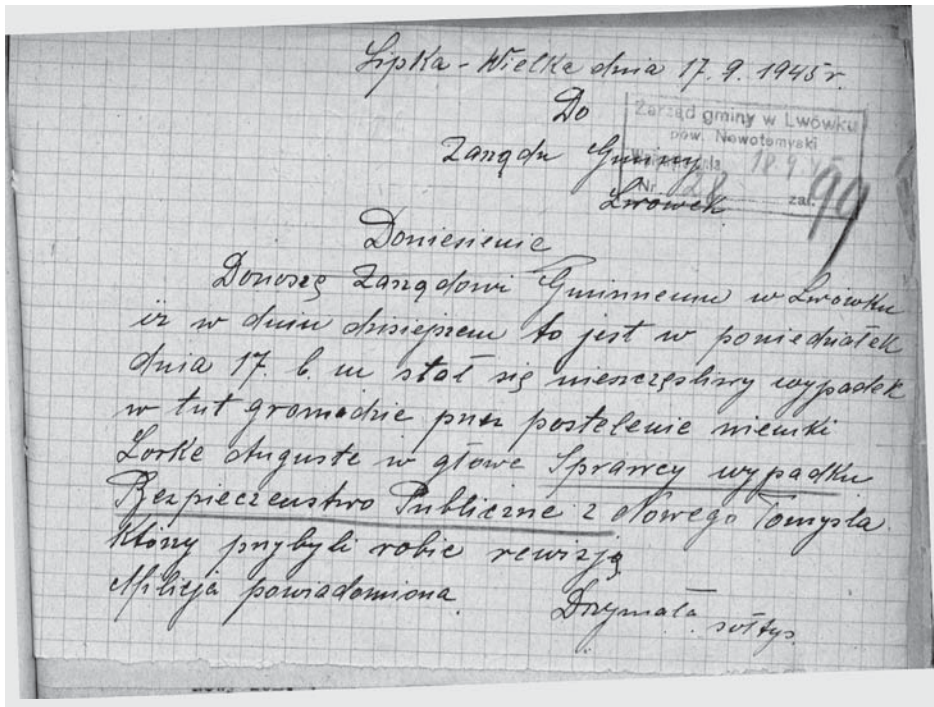 Lipka - Wielka dnia 17. 9. 1945 r.
Do
Zarządu Gminy
Lwówek
Zarząd gminy w Lwówku
pow. Nowotomyski
18. 9. 45
Nr. 28 zał.
99
Doniesienie
Donoszę Zarządowi Gminnemu w Lwówku
iż w dniu dzisiejszem to jest w poniedziałek
dnia 17. b. m stał się nieszczęśliwy wypadek
w tut gromadzie przez postelenie niemki
Lorke Auguste w głowe Sprawcy wypadku
Bezpieczenstwo Publiczne z Nowego Tomysla
Którzy przybyli robic rewizję
Milicja powiadomiona.
Drzymała
sołtys.